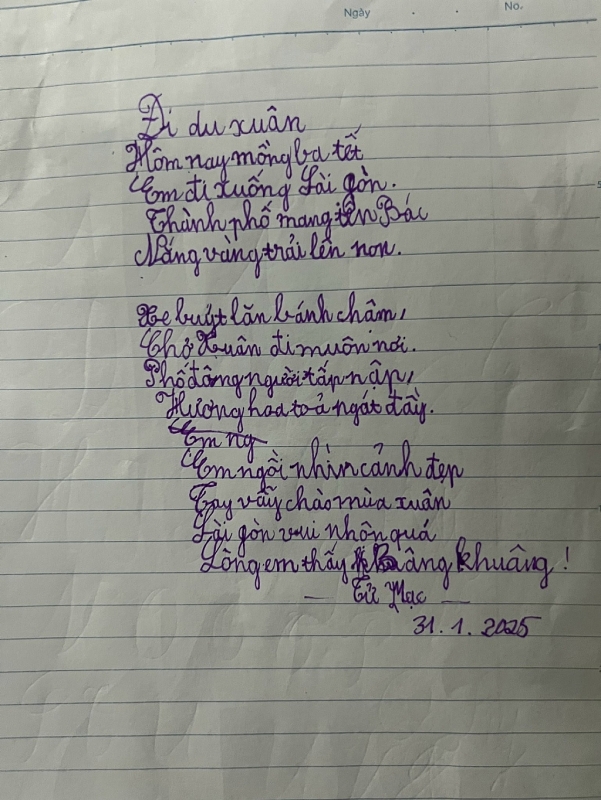 Ngày . . No.
Đi du xuân
Hôm nay mồng ba tết
Em đi xuống Sài gòn.
Thành phố mang tên Bác
Nắng vàng trải lên non.
Xe buýt lăn bánh chầm,
Chở Xuân đi muôn nơi.
Phố đông người tấp nập,
Hương hoa toả ngát đầy.
Em ng
Em ngồi nhìn cảnh đẹp
Tay vẫy chào mùa xuân
Sài gòn vui nhộn quá
Lòng em thấy Bâng khuâng!
— Tử Mạc —
31.1.2025